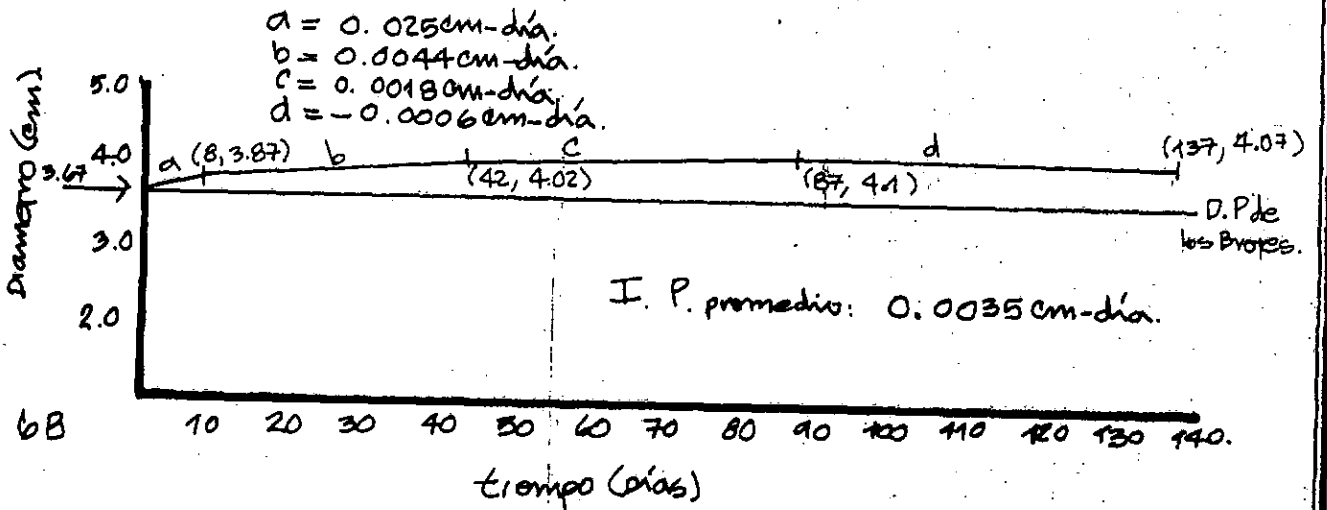 a = 0.025cm-día.
b = 0.0044cm-día.
c = 0.0018cm-día.
d = -0.0006cm-día.
Diametro (cm)
5.0
4.0
3.67
3.0
2.0
a (8, 3.87) b
(42, 4.02)
c
(87, 4.1)
d
(137, 4.07)
D.P de
los Brotes.
I. P. promedio: 0.0035cm-día.
6B
10 20 30 40 50 60 70 80 90 100 110 120 130 140.
tiempo (días)